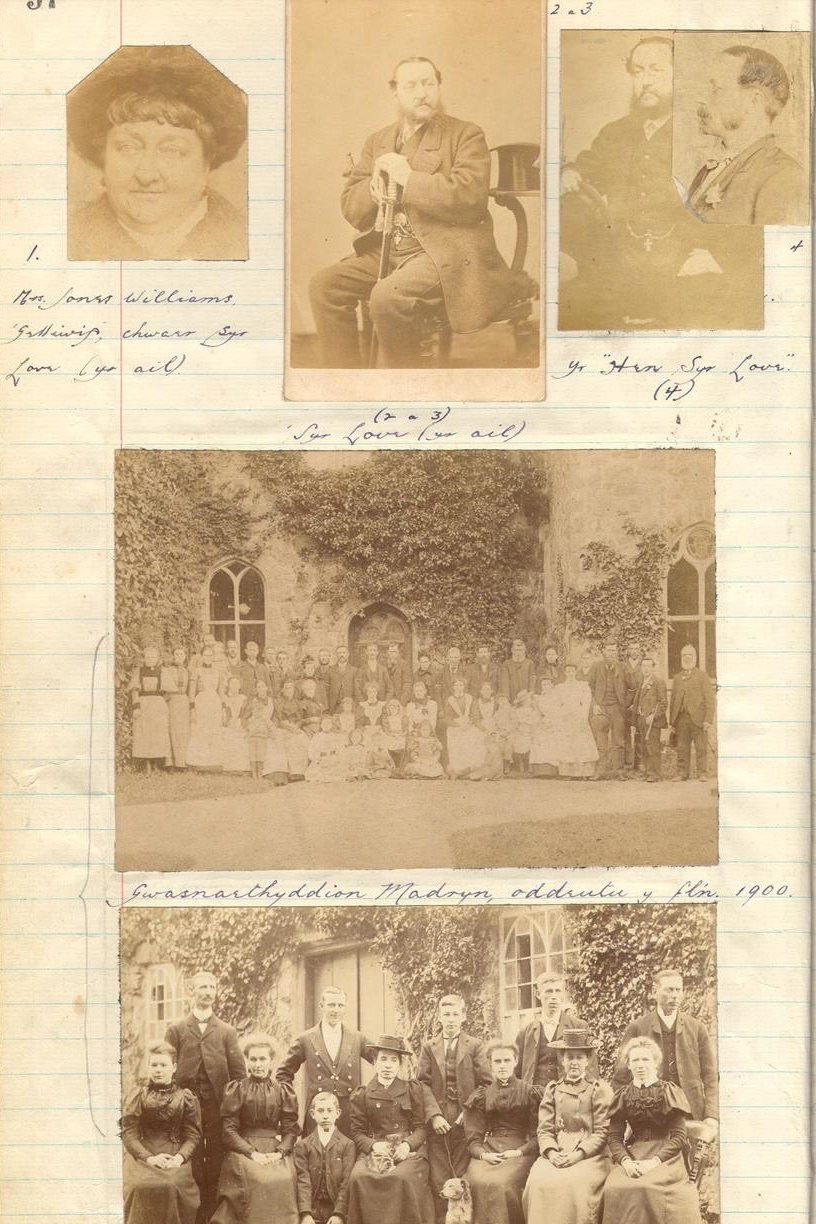 37
2 a 3.
1.
Mrs. Jones Williams,
Gelliwig, chwaer Syr
Love (yr ail).
4
Yr "Hen Syr Love".
(4)
(2 a 3)
Syr Love (yr ail)
Gwasnaethyddion Madryn, oddeutu y fln. 1900.